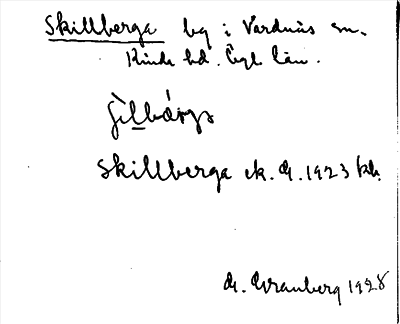 Skillberga by i Vårdnäs sn.
Kinds hd. Ögl. län.
Skillberga ek. Bl. 1923 kb.
G. Granberg 1928